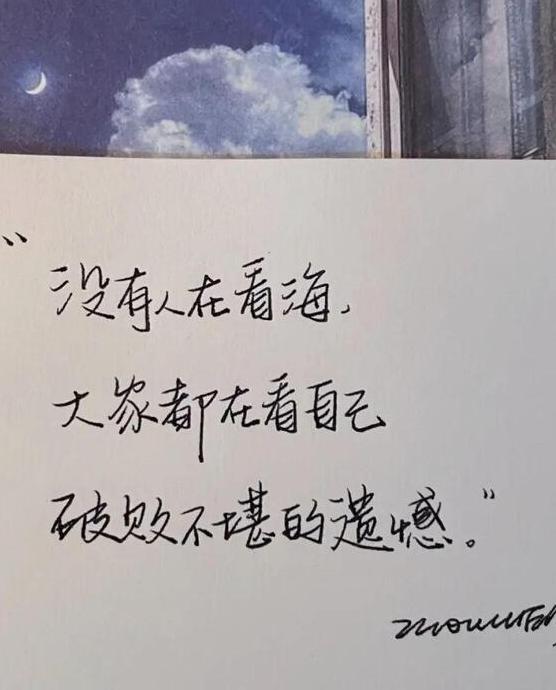 “没有人在看海,
大家都在看自己
破败不堪的遗憾。”